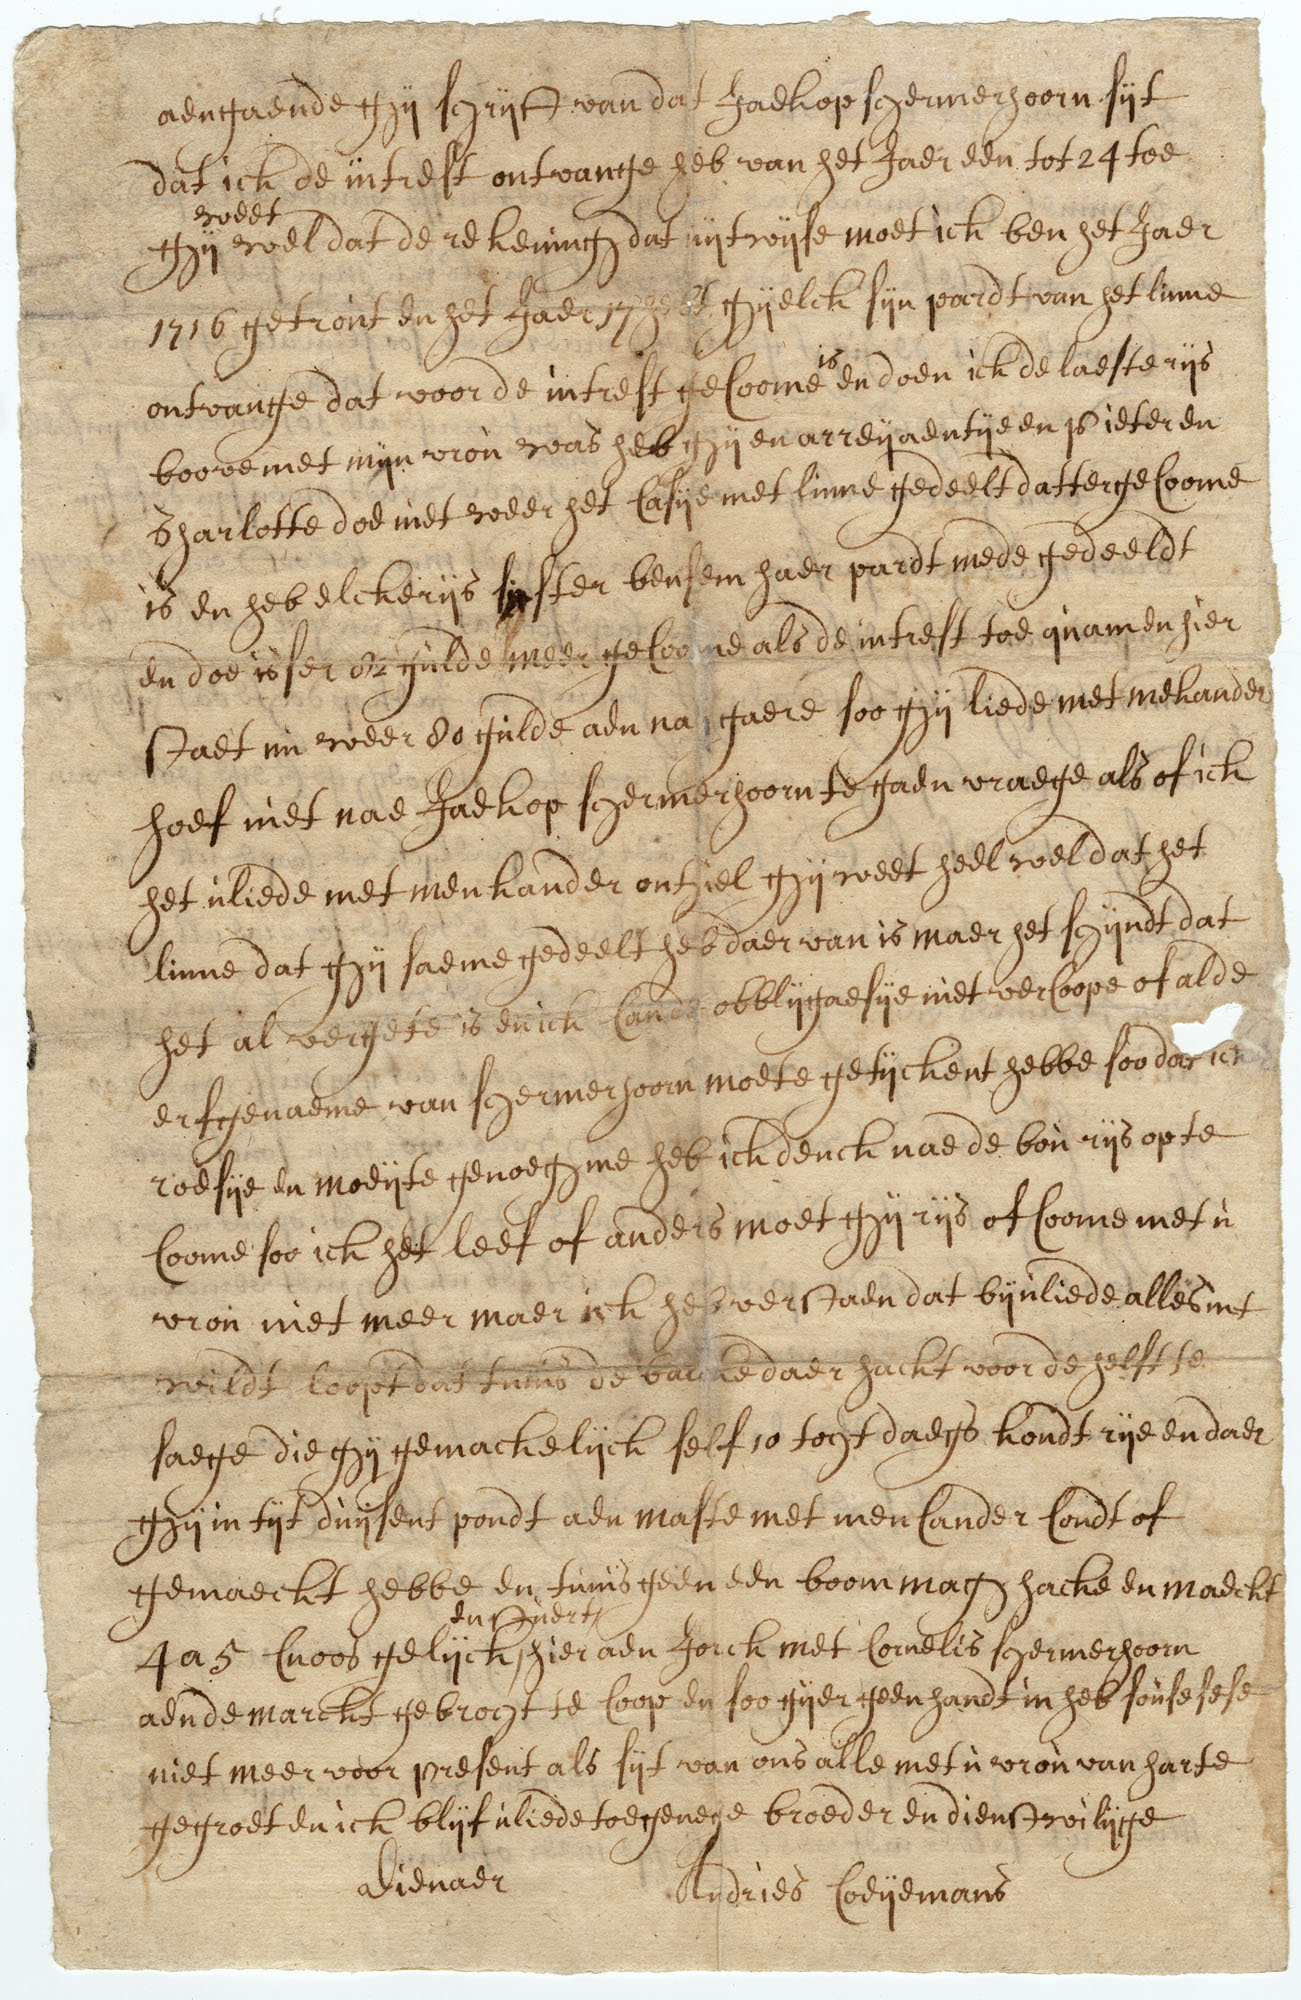 aengaende gij schrijft van dat Jaekop schermerhoorn sijt
dat ick de intrest ontvange heb van het Jaer een tot 24 toe
weet
gij wel dat de rekeningh dat uijtwijse moet ick ben het Jaer
1716 getrout en het Jaer 17 hebt gij elck sijn pardt van het linne
is
ontvange dat voor de intrest gecoome en doen ick de laeste rijs
boove met mijn vrou was heb gij en arreijaentije en pieter en
sharlotte doe niet weer het casije met linne gedeelt datter gecoome
is en heb elcke rijs suster bensem haer pardt mede gedeeldt
en doe isser 82 gulde meer gecoome als de intrest toe quam en hier
staet nu weer 80 gulde aen na gaere soo gij liede met mekander
hoef niet nae Jaekop schermerhoorn te gaen vraege als of ick
het uliede met menkander onthiel gij weet heel wel dat het
linne dat gij saeme gedeelt heb daer van is maer het schijndt dat
het al vergete is en ick can de obblijgaesije niet vercoope of al de
erfgenaeme van schermerhoorn moete getijckent hebbe soo dat ick
roesije en moeijte genoegh me heb ick denck nae de bou rijs op te
coome soo ick het leef of anders moet gij rijs of coome met u
vrou niet meer maer ick heb verstaen dat bij uliede alles int
wildt loopt dat tunis de barcke daer hackt voor de helft te
saege die gij gemackelijck self 10 tocht daegs kondt rije en daer
gij in tijt duijsent pondt aen maste met mencander condt of
gemaeckt hebbe en tunis geen een boom magh hacke en maeckt
en stuert
4 a 5 cnoos gelijck hier aen Jorck met Cornelis schermerhoorn
aen de marckt gebrocht te coop en soo gijer geen handt in heb sou sesese
niet meer voor present als sijt van ons alle met u vrou van harte
gegroet en ick blijf uliede toegenege broeder en dienstwilijge
Dienaer Andries Coeijemans